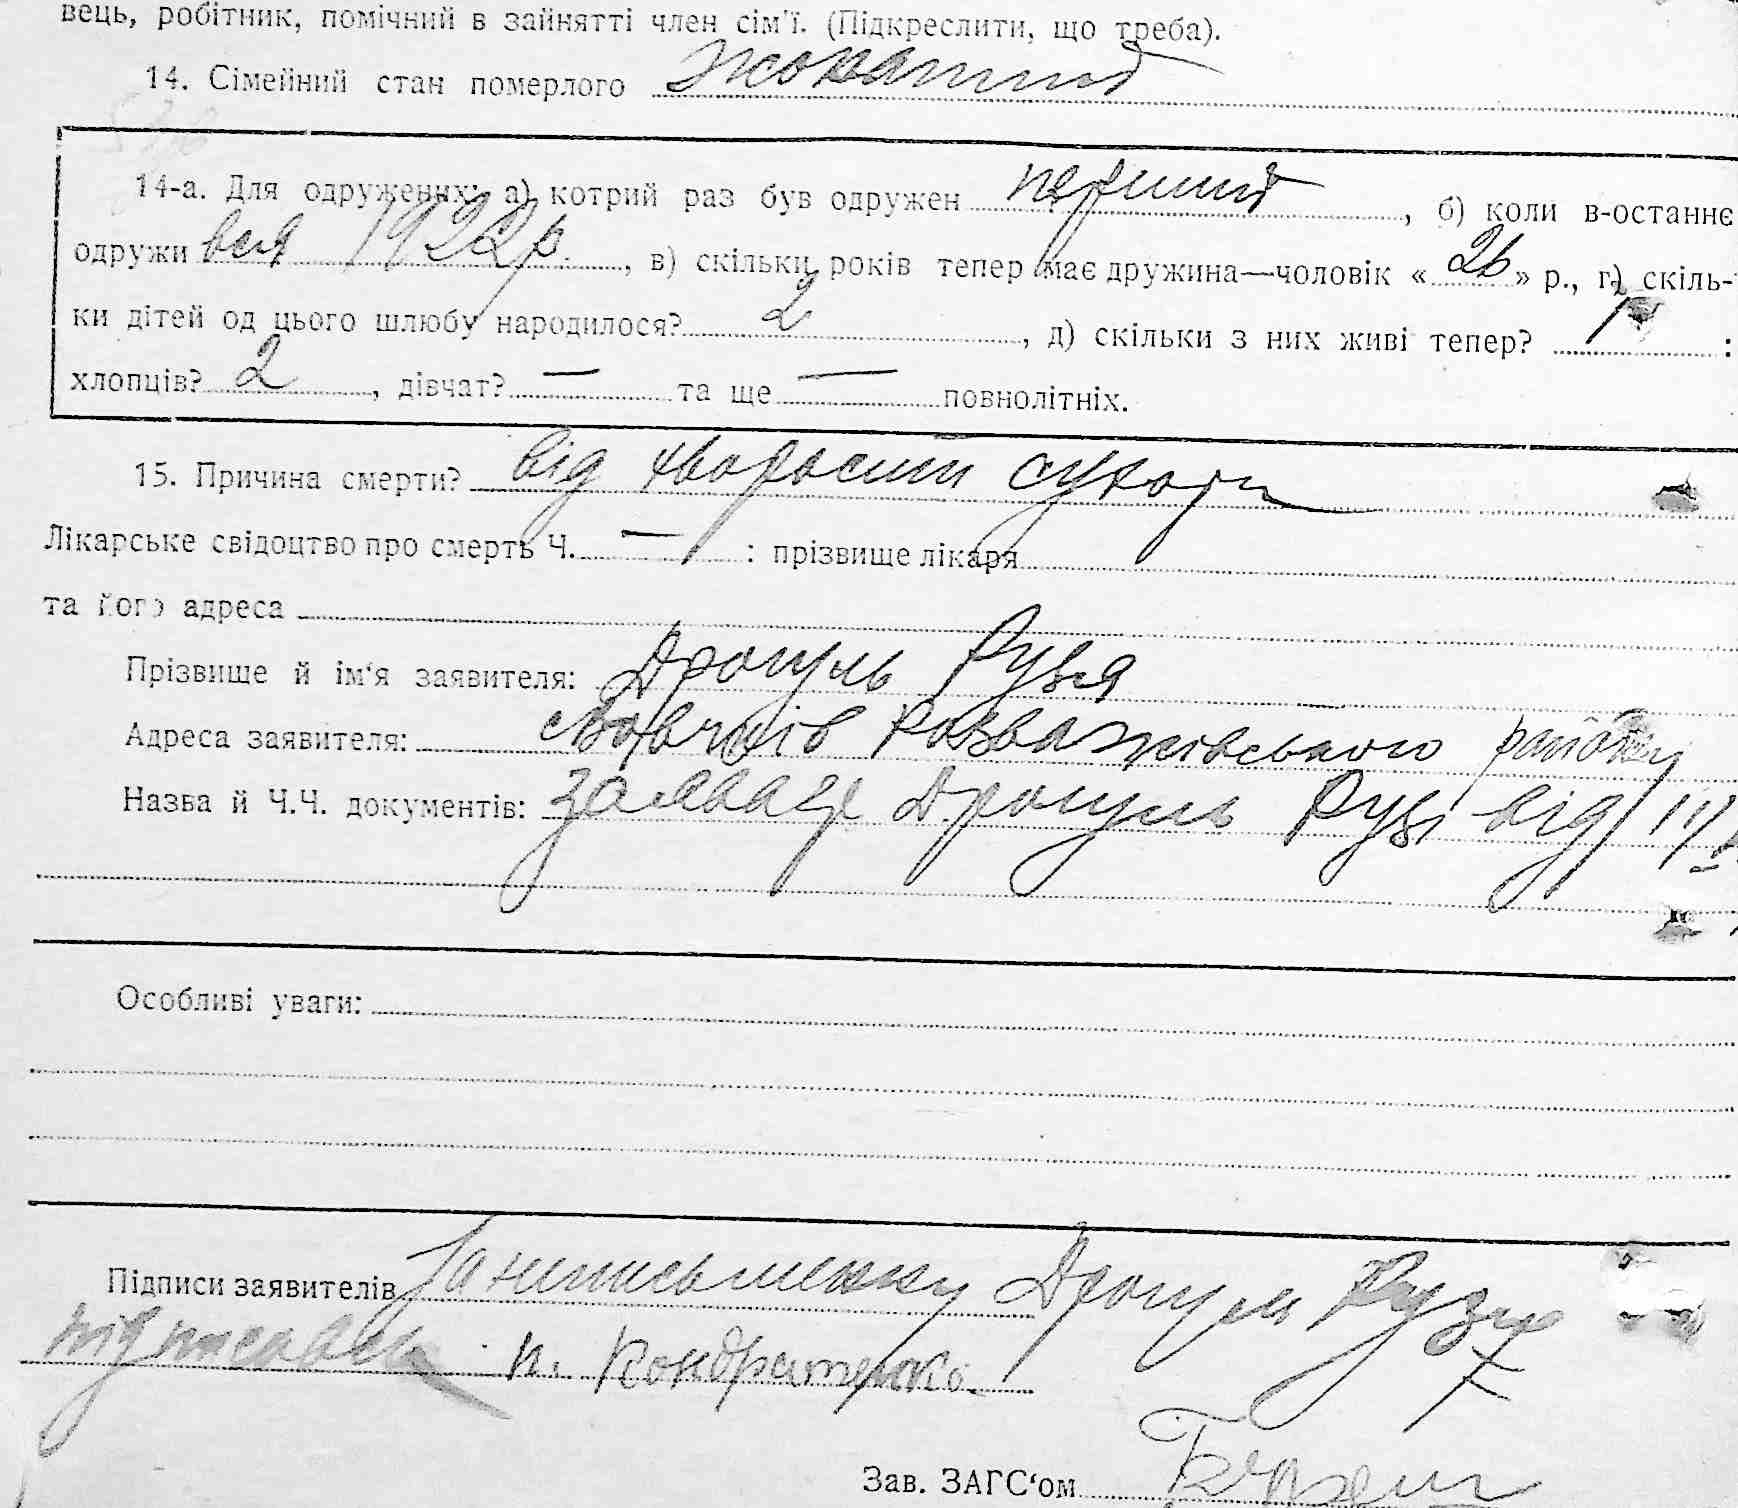 вець, робітник, помічний в зайнятті член сім'ї. (Підкреслити, що треба).
14. Сімейний стан померлого жонатий
14-а. Для одружених: а) котрий раз був одружен перший, б) коли в-останнє
одружи вся 1922 р., в) скільки років тепер має дружина—чоловік « 26 » р., г) скіль-
ки дітей од цього шлюбу народилося? 2, д) скільки з них живі тепер? :
хлопців? 2, дівчат? — та ще — повнолітніх.
15. Причина смерти? від хворости сухоти
Лікарське свідоцтво про смерть Ч. — : прізвище лікаря
та його адреса
Прізвище й ім'я заявителя: Дрогуль Рузя
Адреса заявителя: Розважівського району
Назва й Ч.Ч. документів: Дрогуль Рузі від
Особливі уваги:
Підписи заявителів За неписьменну Дрогуль Рузю
підписався п. Кондратенко.
Зав. ЗАГС'ом